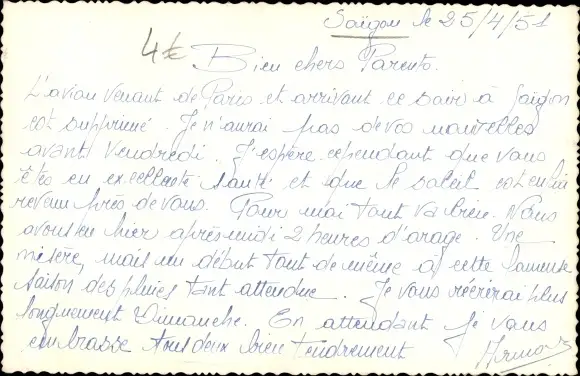 Saïgon le 25/4/51
4€
Bien chers Parents.
L'avion venant de Paris et arrivant ce soir à Saïgon
est supprimé. Je n'aurai pas de vos nouvelles
avant Vendredi. J'espère cependant que vous
êtes en excellente santé et que le soleil est enfin
revenu près de vous. Pour moi tout va bien. Nous
avons eu hier après midi 2 heures d'orage. Une
misère, mais un début tout de même à cette fameuse
saison des pluies tant attendue. Je vous réécrirai plus
longuement Dimanche. En attendant je vous
embrasse tous deux bien tendrement